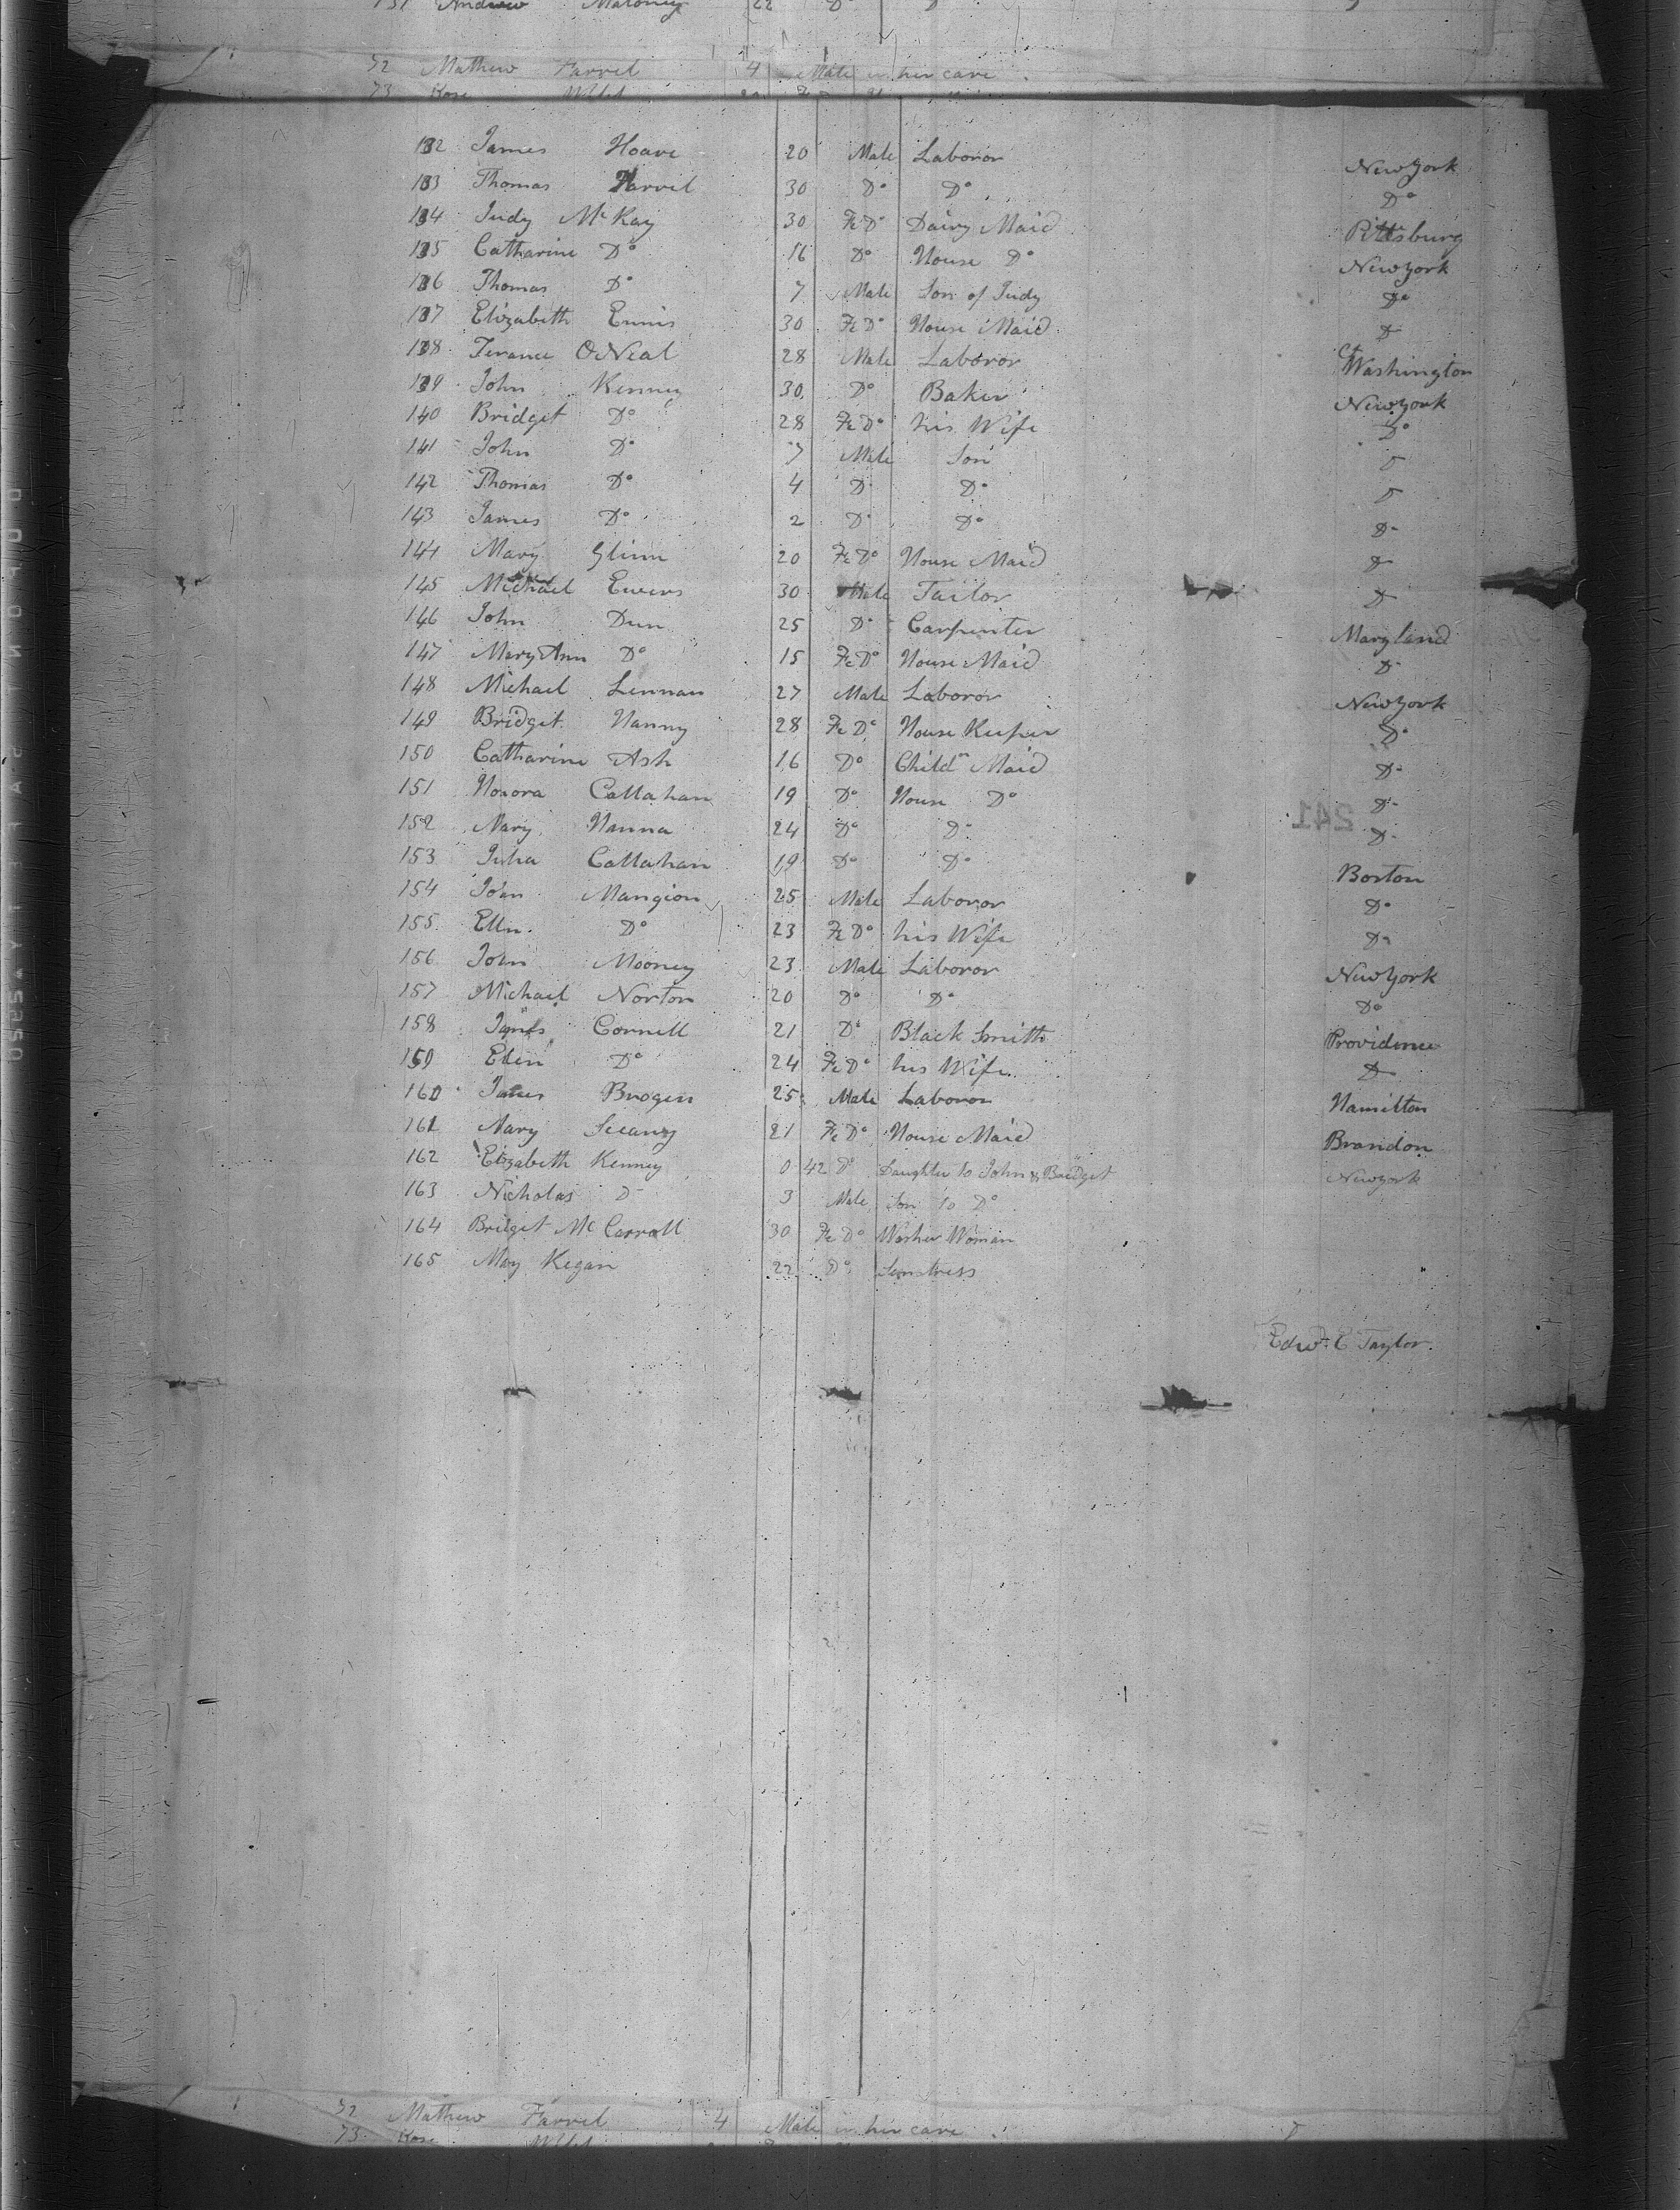 131 Andrew Maloney 22 Do D
72 Mathew Farrel 4 Male in her care
73 Rose
132 James Hoare 20 Male Laboror New York
133 Thomas Farrel 30 Do Do Do
134 Judy McKay 30 Fe Do Dairy Maid Pittsburg
135 Catharine Do 16 Do House Do New York
136 Thomas Do 7 Male Son of Judy Do
137 Elizabeth Ennis 30 Fe Do House Maid D
138 Terance O Neal 28 Male Laboror Washington
139 John Kenney 30 Do Baker New York
140 Bridget Do 28 Fe Do his Wife Do
141 John Do 7 Male Son D
142 Thomas Do 4 D Do D
143 James Do 2 D Do D
144 Mary Glinn 20 Fe Do House Maid D
145 Michael Ewers 30 Male Tailor D
146 John Dun 25 D Carpinter Maryland
147 Mary Ann Do 15 Fe Do House Maid D
148 Michael Lennan 27 Male Laboror New York
149 Bridget Nanny 28 Fe Do House Keeper D
150 Catharine Ash 16 Do Childn Maid D
151 Honora Callahan 19 Do House Do D
152 Mary Hanna 24 Do D D
153 Julia Callahan 19 Do Do Boston
154 John Mangion 25 Male Laboror Do
155 Elln Do 23 Fe Do his Wife Do
156 John Mooney 23 Male Laboror New York
157 Michael Norton 20 Do Do Do
158 James Connell 21 Do Black Smith Providence
159 Ellen Do 24 Fe Do his Wife D
160 James Brogen 25 Male Laboror Hamilton
161 Mary 21 Fe Do House Maid Brandon
162 Elizabeth Kenney 0 42 Do Daughter to John & Bridget New york
163 Nicholas D 3 Male Son to Do
164 Bridget McCarroll 30 Fe Do Washer Woman
165 Mary Kegan 22 Do Semstress
241
Edwd. C Taylor.
72 Mathew Farrel 4 Male in her care
73 Rose